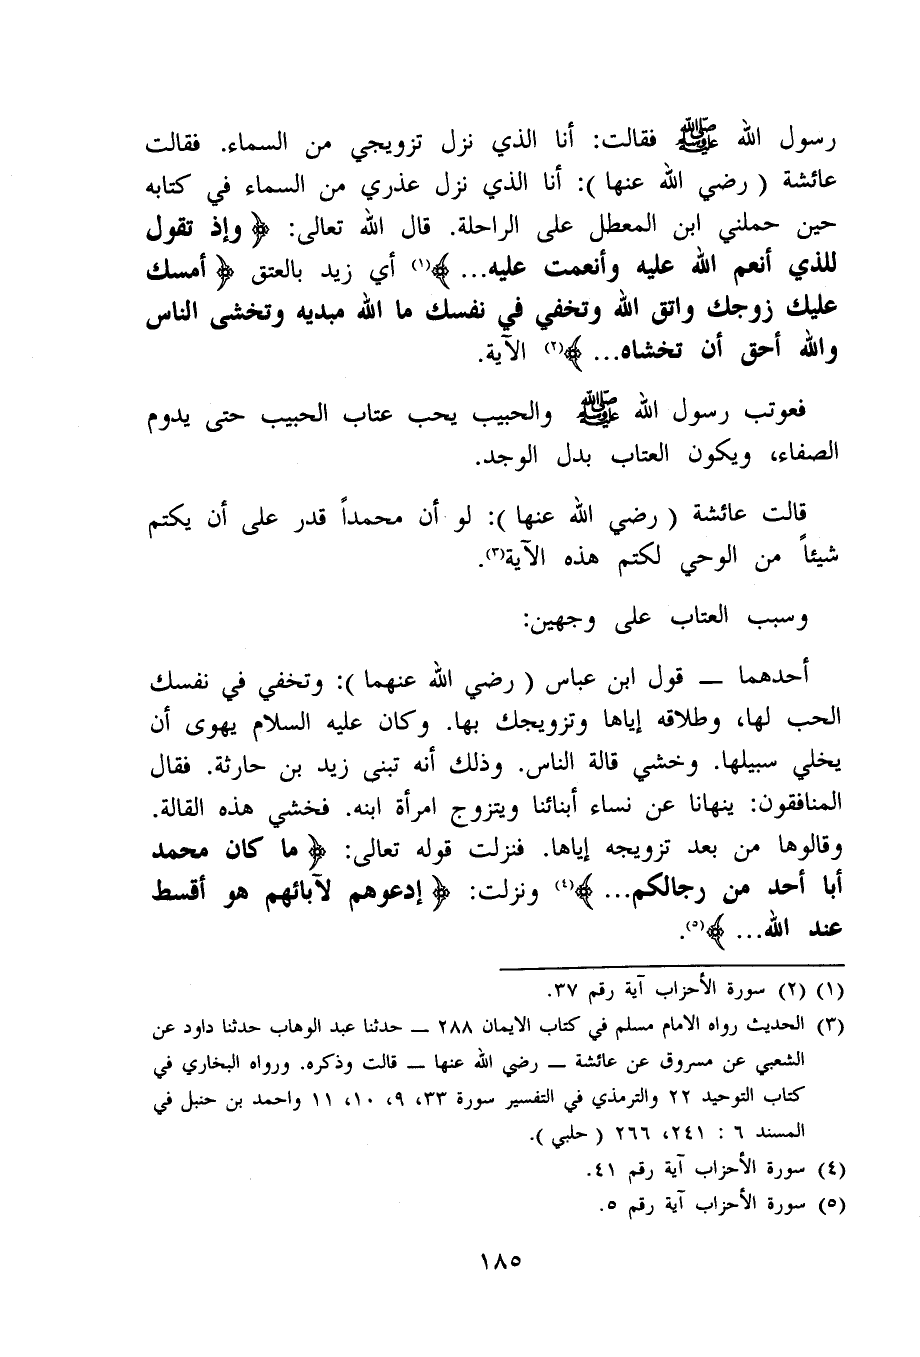 رسول الله ﷺ فقالت: أنا الذي نزل تزويجي من السماء. فقالت
عائشة ( رضي الله عنها ): أنا الذي نزل عذري من السماء في كتابه
حين حملني ابن المعطل على الراحلة. قال الله تعالى: ﴿ وإذ تقول
للذي أنعم الله عليه وأنعمت عليه... ﴾(١) أي زيد بالعتق ﴿ أمسك
عليك زوجك واتق الله وتخفي في نفسك ما الله مبديه وتخشى الناس
والله أحق أن تخشاه... ﴾(٢) الآية.
فعوتب رسول الله ﷺ والحبيب يحب عتاب الحبيب حتى يدوم
الصفاء، ويكون العتاب بدل الوجد.
قالت عائشة ( رضي الله عنها ): لو أن محمداً قدر على أن يكتم
شيئاً من الوحي لكتم هذه الآية(٣).
وسبب العتاب على وجهين:
أحدهما ــ قول ابن عباس ( رضي الله عنهما ): وتخفي في نفسك
الحب لها، وطلاقه إياها وتزويجك بها. وكان عليه السلام يهوى أن
يخلي سبيلها. وخشي قالة الناس. وذلك أنه تبنى زيد بن حارثة. فقال
المنافقون: ينهانا عن نساء أبنائنا ويتزوج امرأة ابنه. فخشي هذه القالة.
وقالوها من بعد تزويجه إياها. فنزلت قوله تعالى: ﴿ ما كان محمد
أبا أحد من رجالكم... ﴾(٤) ونزلت: ﴿ إدعوهم لآبائهم هو أقسط
عند الله... ﴾(٥).
(١) (٢) سورة الأحزاب آية رقم ٣٧.
(٣) الحديث رواه الامام مسلم في كتاب الايمان ٢٨٨ ــ حدثنا عبد الوهاب حدثنا داود عن
الشعبي عن مسروق عن عائشة ــ رضي الله عنها ــ قالت وذكره. ورواه البخاري في
كتاب التوحيد ٢٢ والترمذي في التفسير سورة ٣٣، ٩، ١٠، ١١ واحمد بن حنبل في
المسند ٦ : ٢٤١، ٢٦٦ ( حلبي ).
(٤) سورة الأحزاب آية رقم ٤١.
(٥) سورة الأحزاب آية رقم ٥.
١٨٥